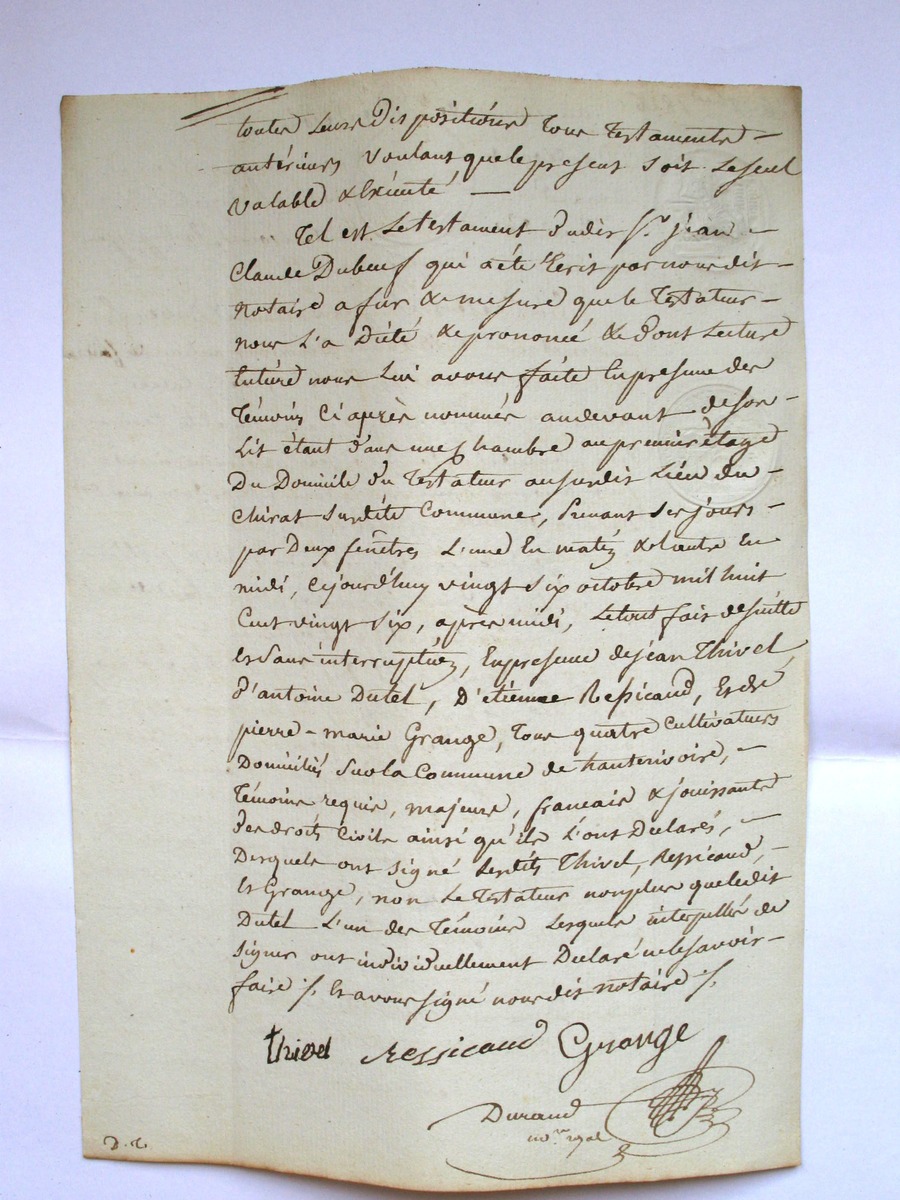 toutes leurs Dispositions Tous Testaments -
antérieurs voulant que le present soit Le seul
valable & Exécuté —
Tel est Le testament dudit Sr. jean -
Claude Dubeuf qui a été Ecrit par nous dit -
Notaire a fur & mesure que le Testateur -
nous L'a Dicté & prononcé & Dont Lecture
Entiere nous Lui avons faite En presence des
Témoins Ci après nommés au devant de son -
Lit étant dans une Chambre au premier étage
Du Domicile du Testateur au susdit Lieu du -
Chirat susdite Commune, Prenant ses jours -
par Deux fenêtres L'une En matin & l'autre En
midi, cejourd'huy vingt six octobre mil huit
Cent vingt six, après midi, Le tout fait de suitte
et Sans interruption, En presence de jean Thivel,
d'antoine Dutel, D'etienne Ressicaud, Et de
pierre-marie Grange, Tous quatre Cultivateurs
Domiciliés Sur la Commune de hauterivoire, -
Témoins requis, majeurs, francais & jouissants
des droits Civils ainsi qu'ils L'ont Declarés, -
Desquels ont signé Lesdits Thivel, Ressicaud, -
Et Grange, non Le Testateur non plus que ledit
Dutel L'un des Témoins Lesquels interpellés de
signer ont individuellement Declaré ne le savoir -
faire ./. Et avons signé nous dit notaire ./.
thivel Ressicaud Grange
Durand
nore. royal
D. C.